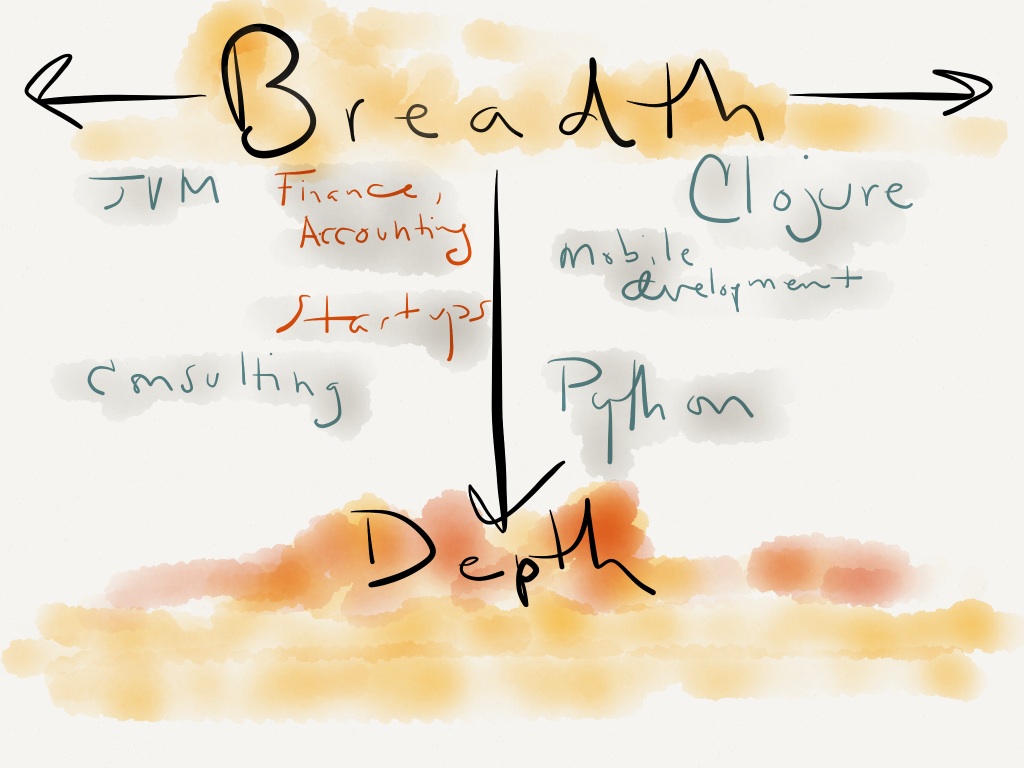 Breadth
JVM
Finance,
Accounting
Clojure
Mobile
development
Startups
Consulting
Python
Depth